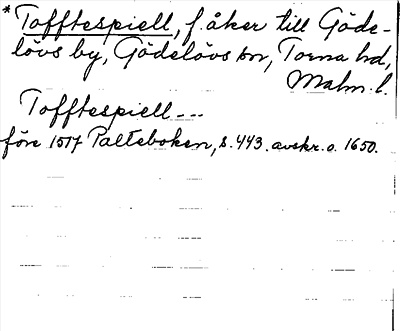 * Tofftespiell, f. åker till Göde-
lövs by, Gödelövs sn, Torna hd,
Malm. l.
Tofftespiell ---
före 1517 Palteboken, s. 443. avskr. o. 1650.